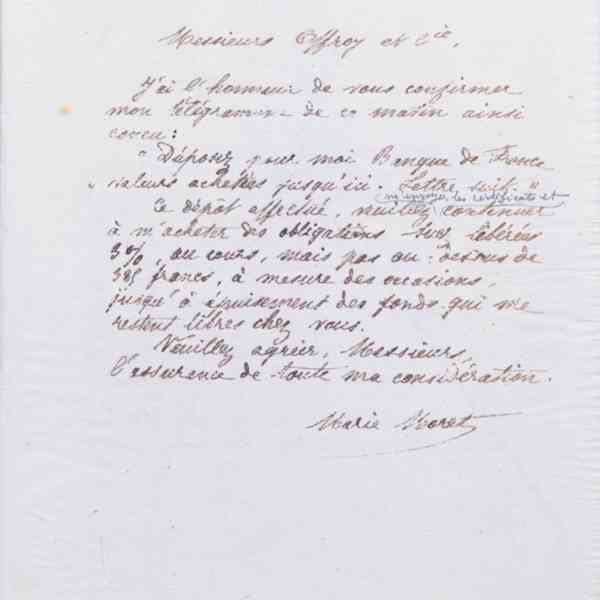 Messieurs Offroy et Cie,
J'ai l'honneur de vous confirmer
mon télégramme de ce matin ainsi
concu :
" Déposez pour moi Banque de France
" valeurs achetées jusqu'ici. Lettre suit. "
m'envoyer les récépissés et
Ce dépôt effectué, veuillez continuer
à m'acheter des obligations Suez libérées
3%, au cours, mais pas au-dessus de
385 francs, à mesure des occasions,
jusqu'à épuisement des fonds qui me
restent libres chez vous.
Veuillez agréer, Messieurs,
l'assurance de toute ma considération.
Marie Moret